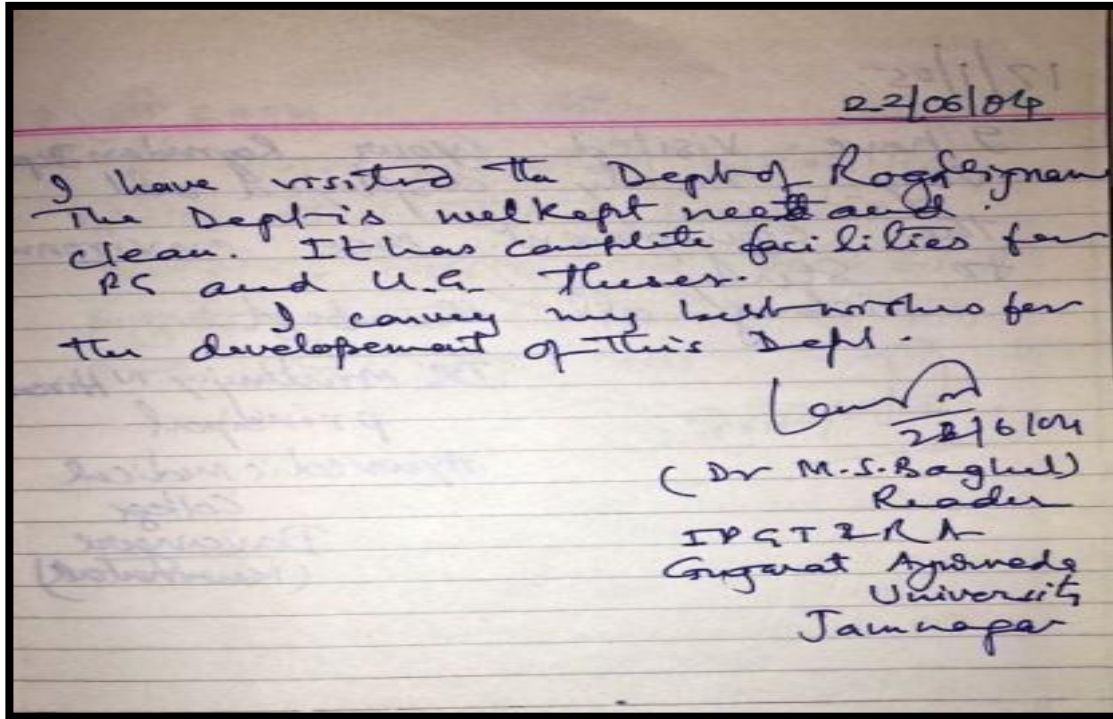 22/06/04
I have visited the Dept of Roga Vignan
The Dept is welkept neet and
clean. It has complete facilities for
PG and U.G. Theses.
I convey my best wishes for
the developement of This Dept.
22/6/04
(Dr M.S. Baghel)
Reader
IPGT & RA
Gujarat Ayurveda
University
Jamnagar